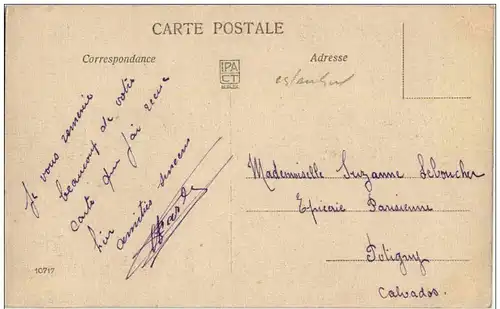 CARTE POSTALE
Correspondance
Adresse
IPA
CT
Je vous remercie
beaucoup de votre
carte que j'ai recue
hier
amitiés sincères
Mademoiselle Suzanne Leboucher
Epicerie Parisienne
Potigny
Calvados.
10717